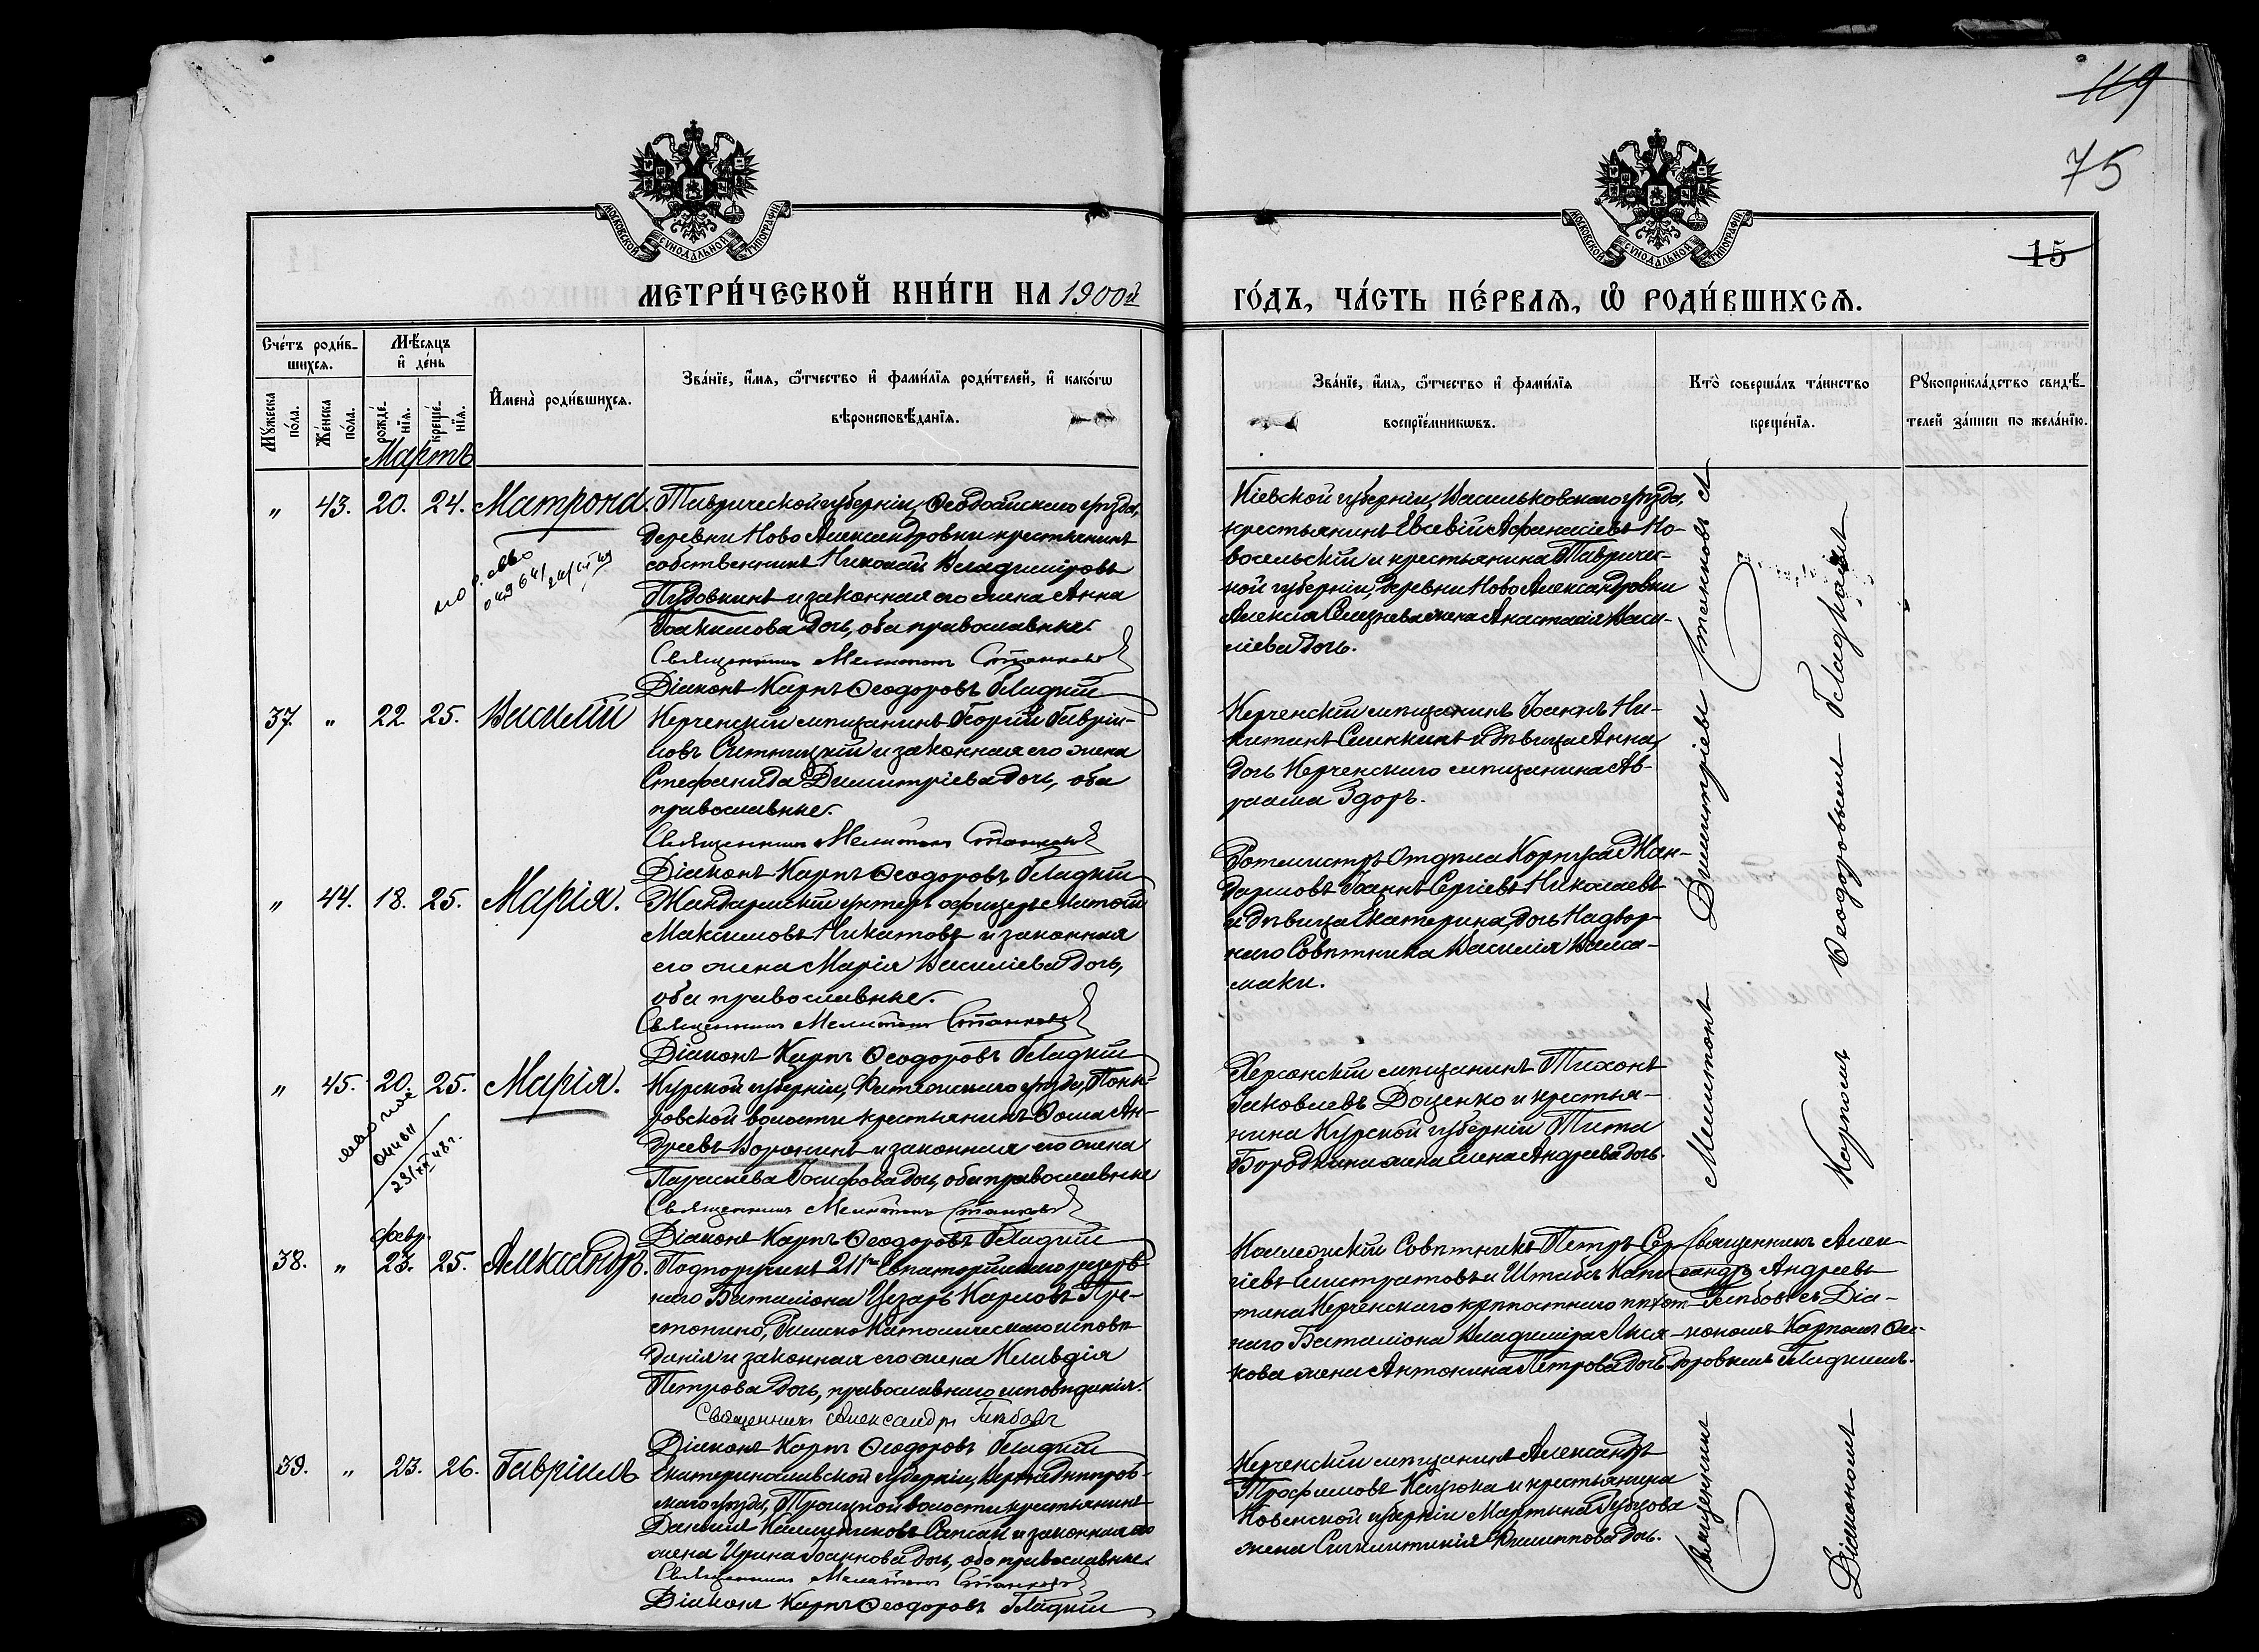 119
75
15
МОСКОВСКОЙ СѴНОДАЛЬНОЙ ТИПОГРАФІИ
МОСКОВСКОЙ СѴНОДАЛЬНОЙ ТИПОГРАФІИ
МЕТРИ́ЧЕСКОЙ КНИ́ГИ НА 1900й
ГО́ДЪ, ЧА́СТЬ ПЕ́РВАЯ, Ѽ РОДИ́ВШИХСЯ.
Сче́тъ роди́в-
шихся.
Мѣ́сяцъ
и҆ де́нь
Мꙋ́жеска
по́ла.
Же́нска
по́ла.
рожде́-
нїя.
креще́-
нїя.
И҆мена̀ роди́вшихся.
Зва́нїе, и҆́мя, ѻ҆́тчество и҆ фами́лїя роди́телей, и҆ како́гѡ
вѣроисповѣ́данїя.
Зва́нїе, и҆́мя, ѻ҆́тчество и҆ фами́лїя
воспрїе́мникѡвъ.
Кто̀ соверша́лъ та́инство
креще́нїя.
Рꙋкоприкла́дство свидѣ́-
телей за́писи по жела́нїю.
Мартъ
" 43. 20. 24. Матрона.
Таврической губерніи, Ѳеодосійскаго уѣзда,
деревни Ново Александровки крестьянинъ
собственникъ Николай Владиміровъ
Пудовкинъ и законная его жена Анна
Іоакимова дочь, оба православные.
Священникъ Мелитонъ Станковъ
Діаконъ Карпъ Ѳеодоровъ Гладкій
Кіевской губерніи, Васильковскаго уѣзда,
крестьянинъ Евсевій Афанасіевъ Но-
восельскій и крестьянина Тавричес-
кой губерніи, деревни Ново Александровки
Алексія Селезнева жена Анастасія Васи-
ліева дочь.
37. " 22 25. Василій
Керченскій мѣщанинъ Георгій Гавріи-
ловъ Ситницкій и законная его жена
Стефанида Димитріева дочь, оба
православные.
Священникъ Мелитонъ Станковъ
Діаконъ Карпъ Ѳеодоровъ Гладкій
Керченскій мѣщанинъ Іоаннъ Ни-
китинъ Синкинъ и дѣвица Анна,
дочь Керченскаго мѣщанина Ав-
раама Здоръ.
" 44. 18. 25. Марія.
Жандармскій унтеръ офицеръ
Максимовъ Никитовъ и законная
его жена Марія Василіева дочь,
оба православные.
Священникъ Мелитонъ Станковъ
Діаконъ Карпъ Ѳеодоровъ Гладкій
Ротмистръ Отдѣла Корпуса Жан-
дармовъ Іоаннъ Сергіевъ Николаевъ
и дѣвица Екатерина, дочь Надвор-
наго Совѣтника Василія Валса-
маки.
" 45. 20. 25. Марія.
Курской губерніи, Фатежскаго уѣзда, Поны-
ровской волости крестьянинъ Ѳома Ан-
дреевъ Воронинъ и законная его жена
Параскева Іосифова дочь, оба православные
Священникъ Мелитонъ Станковъ
Діаконъ Карпъ Ѳеодоровъ Гладкій
Херсонскій мѣщанинъ Тихонъ
Іаковлевъ Доценко и крестья-
нина Курской губерніи Тита
Бородкина жена Елена Андреева дочь.
февр.
38. " 23. 25. Александръ.
Подпоручикъ 211го Евпаторійскаго резерв-
наго Баталіона Цезарь Карловъ Пре-
стопино, Римско Католическаго исповѣ-
данія и законная его жена Клавдія
Петрова дочь, православнаго исповѣданія.
Священникъ Александръ Глѣбовъ
Діаконъ Карпъ Ѳеодоровъ Гладкій
Коллежскій Совѣтникъ Петръ Сер-
гіевъ Елистратовъ и Штабсъ Капи-
тана Керченскаго крѣпостного пѣхот-
наго Баталіона Владиміра Лися-
кова жена Антонина Петрова дочь
Священникъ Алек-
сандръ Андреевъ
Глѣбовъ съ Діа-
кономъ Карпомъ Ѳео-
доровымъ Гладкимъ.
39. " 23. 26. Гавріилъ
Екатеринославской губерніи, Верхнеднѣпров-
скаго уѣзда, Троицкой волости крестьянинъ
Даніилъ Каллиниковъ Сапсай и законная его
жена Ирина Іоаннова дочь, оба православные.
Священникъ Мелитонъ Станковъ
Діаконъ Карпъ Ѳеодоровъ Гладкій
Керченскій мѣщанинъ Александръ
Трофимовъ Кацюка и крестьянина
Ковенской губерніи Мартина Рубцова
жена Сигклитикія Филиппова дочь.
Священникъ Мелитонъ Димитріевъ Станковъ
Діакономъ Карпомъ Ѳеодоровымъ Гладкимъ